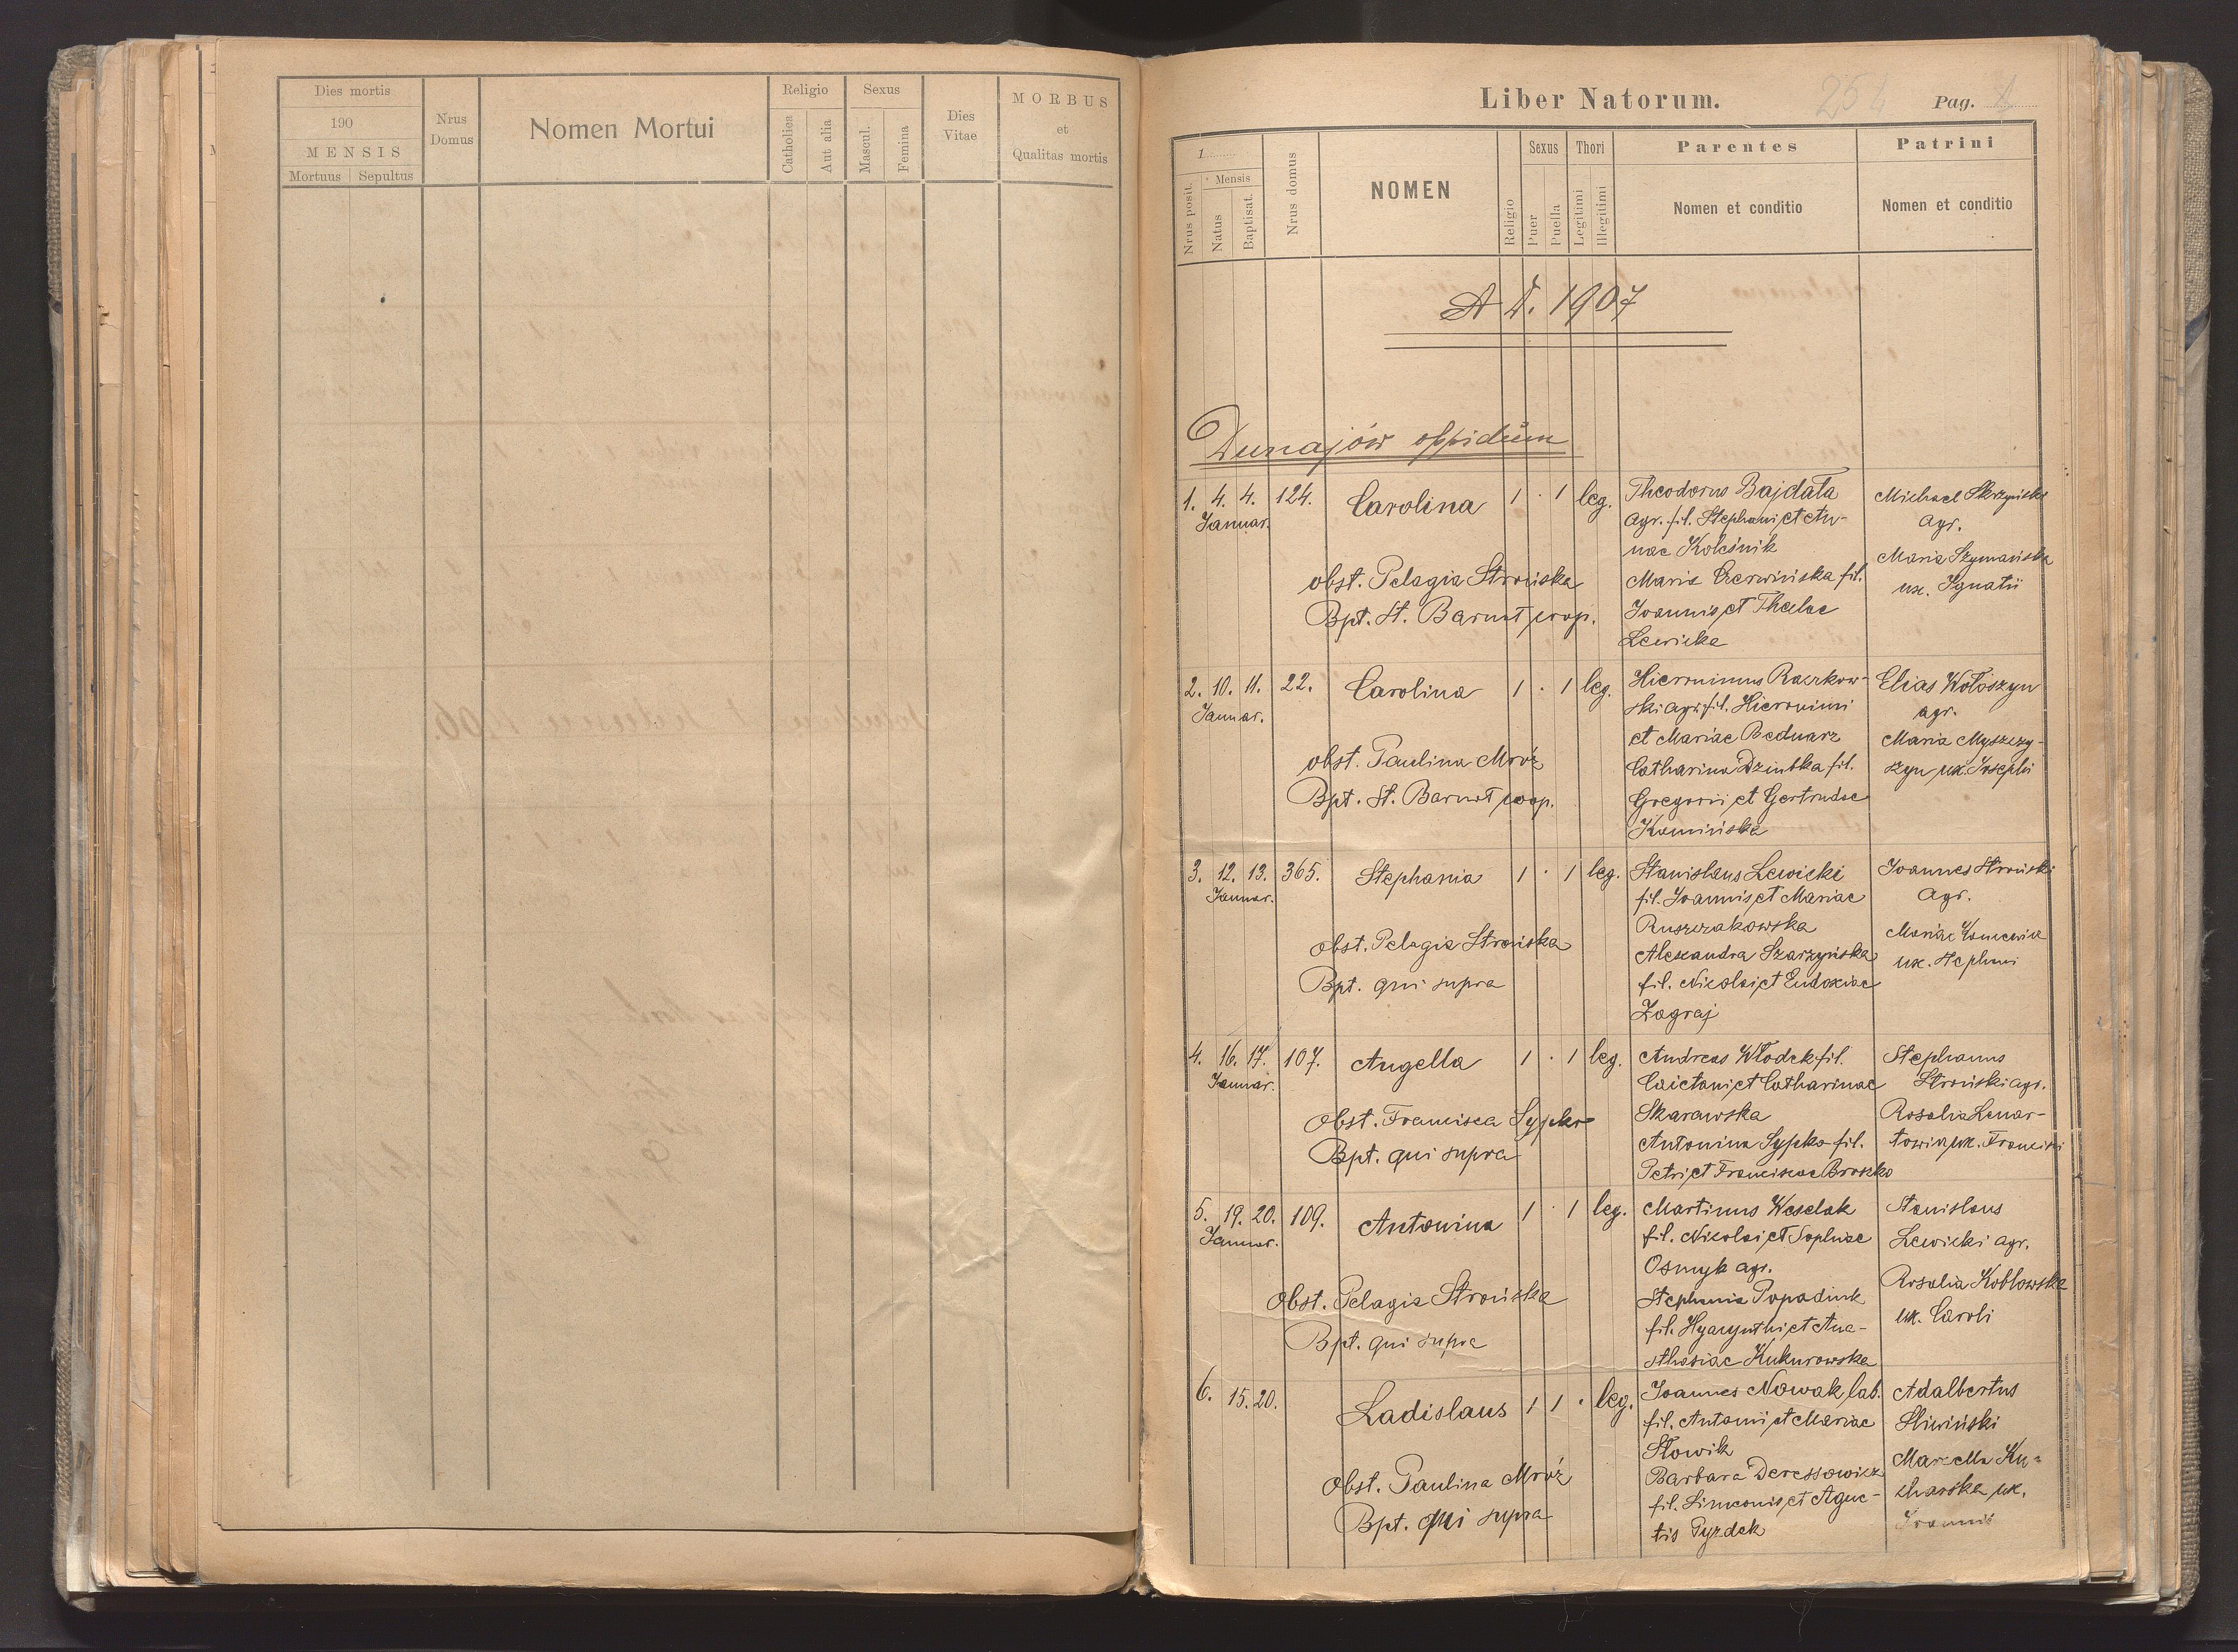 Dies mortis
190
MENSIS
Mortuus Sepultus
Nrus Domus
Nomen Mortui
Religio
Catholica
Aut alia
Sexus
Mascul.
Femina
Dies Vitae
MORBUS
et
Qualitas mortis
Liber Natorum.
Pag. 1
1
Mensis
Nrus posit.
Natus
Baptisat.
Nrus domus
NOMEN
Religio
Sexus
Puer
Puella
Thori
Legitimi
Illegitimi
Parentes
Nomen et conditio
Patrini
Nomen et conditio
A D. 1907
Dunajów oppidum
1. 4. 4. 124. Carolina 1 · 1 leg.
Januar.
obst. Pelagia Strońska
Bpt. St. Barnot coop.
Theodorus Bajdała
agr. fil. Stephani et An-
nae Koleśnik
Maria Czerwińska fil.
Joannis et Theclae
Lewicka
Michael Skrzyński
agr.
Maria Szymańska
ux. Ignatii
2. 10. 11. 22. Carolina 1 · 1 leg.
Januar.
obst. Paulina Mróz
Bpt. St. Barnot coop.
Hieronimus Raczkow-
ski agr. fil. Hieronimi
et Mariae Bednarz
Catharina Dziubka fil.
Gregorii et Gertrudae
Kamińska
Elias Wołoszyn
agr.
Maria Myszczy-
szyn ux. Josephi
3. 12. 13. 365. Stephania 1 · 1 leg.
Januar.
obst. Pelagia Strońska
Bpt. qui supra
Stanislaus Lewicki
fil. Joannis et Mariae
Ruszczakowska
Alexandra Szarzyńska
fil. Nicolai et Eudoxiae
Zagraj
Joannes Stroński
agr.
Maria
ux. Stephani
4. 16. 17. 107. Angella 1 · 1 leg.
Januar.
Obst. Francisca Sypko
Bpt. qui supra
Andreas Włodek fil.
Caietani et Catharinae
Skarawska
Antonina Sypko fil.
Petri et Franciscae Broszko
Stephanus
Stroński agr.
Rosalia Lenar-
towicz ux. Francisci
5. 19. 20. 109. Antonina 1 · 1 leg.
Januar.
Obst. Pelagia Strońska
Bpt. qui supra
Martinus Weselak
fil. Nicolai et Sophiae
Osmyk agr.
Stephania Popadiuk
fil. Hyacynthi et Ana-
sthasiae Kukurowska
Stanislaus
Lewicki agr.
Rosalia Kobłowska
ux. Caroli
6. 15. 20. Ladislaus 1 1 · leg.
Obst. Paulina Mróz
Bpt. qui supra
Joannes Nowak lab.
fil. Antonii et Mariae
Słowik
Barbara Deressowicz
fil. Simeonis et Agne-
tis Pyzdek
Adalbertus
Śliwiński
Marcella Ku-
charska ux.
Joannis